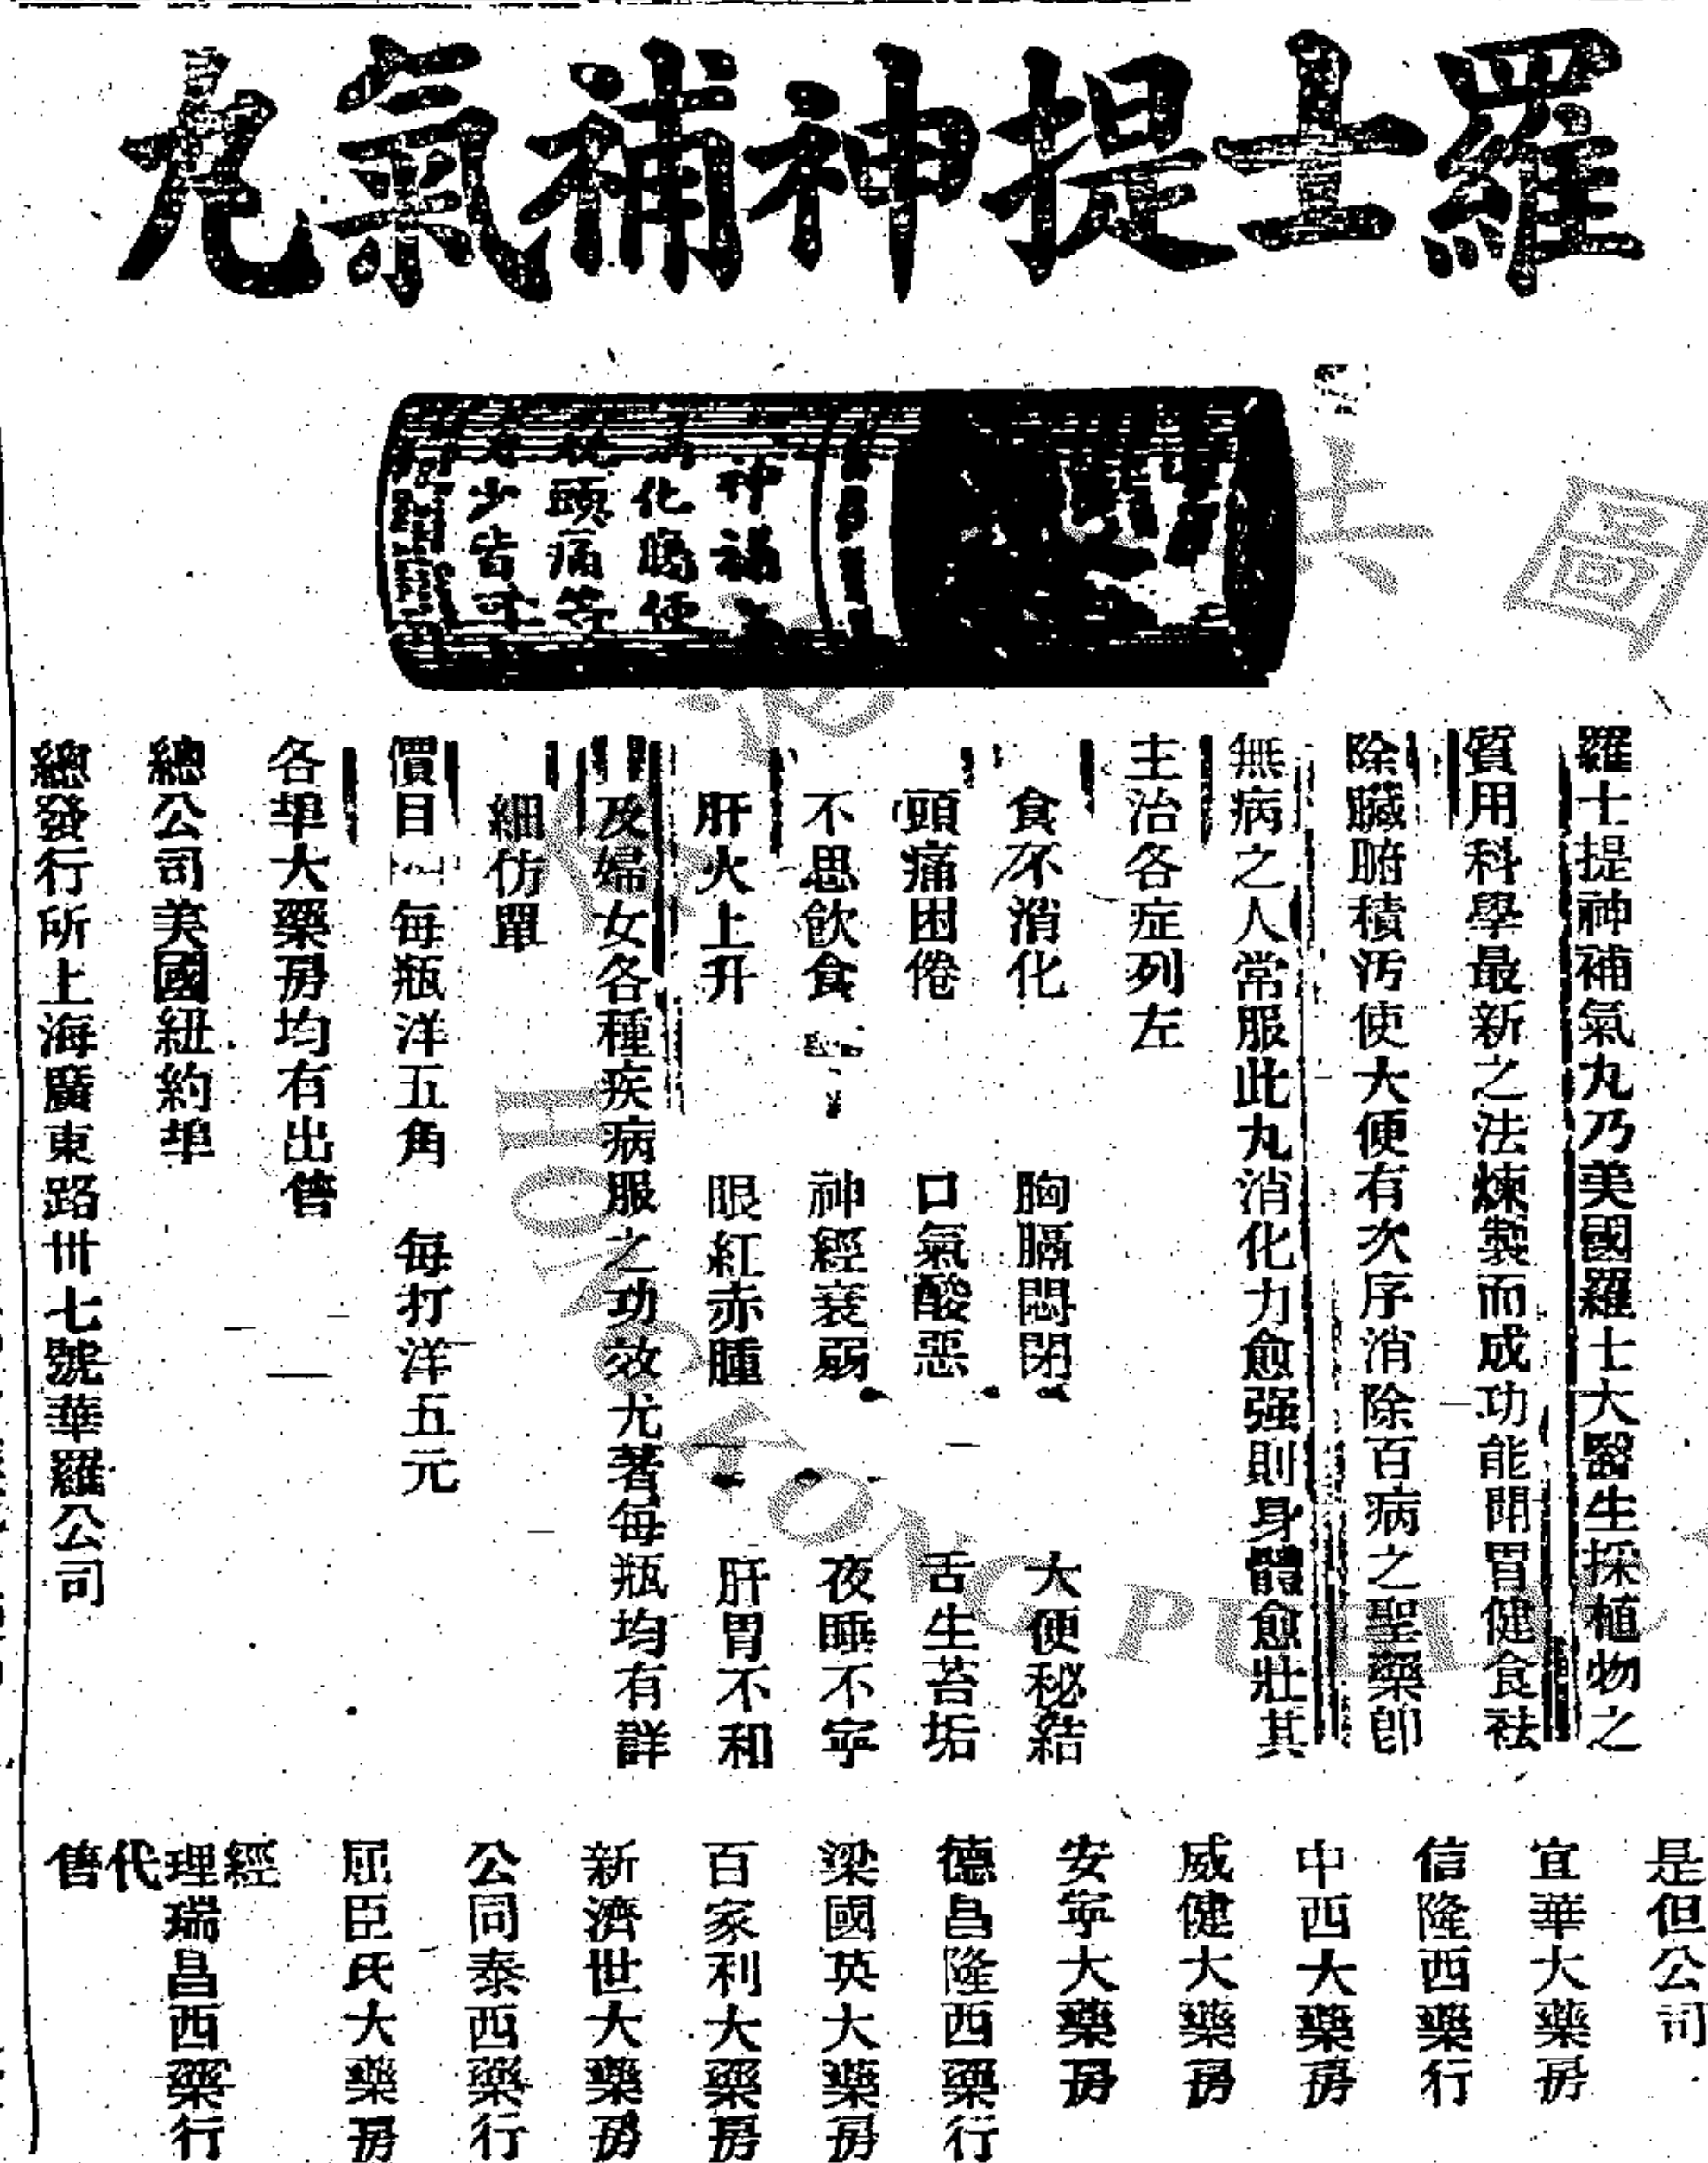 羅士提神補氣丸
神補
化腸便
頭痛等
少皆可
羅士提神補氣丸乃美國羅士大醫生採植物之
質用科學最新之法煉製而成功能開胃健食祛
除臟腑積汚使大便有次序消除百病之聖藥卽
無病之人常服此丸消化力愈强則身體愈壯其
主治各症列左
食不消化 胸膈悶閉 大便秘結
頭痛困倦 口氣酸惡 舌生苔垢
不思飲食 神經衰弱 夜睡不寧
肝火上升 眼紅赤腫 肝胃不和
及婦女各種疾病服之功效尤著每瓶均有詳
細仿單
價目 每瓶洋五角 每打洋五元
各埠大藥房均有出售
總公司美國紐約埠
總發行所上海廣東路卅七號華羅公司
是但公司
宜華大藥房
信隆西藥行
中西大藥房
威健大藥房
安寧大藥房
德昌隆西藥行
梁國英大藥房
百家利大藥房
新濟世大藥房
公同泰西藥行
屈臣氏大藥房
經理瑞昌西藥行
代售
圖
共
HONG KONG PUBLIC